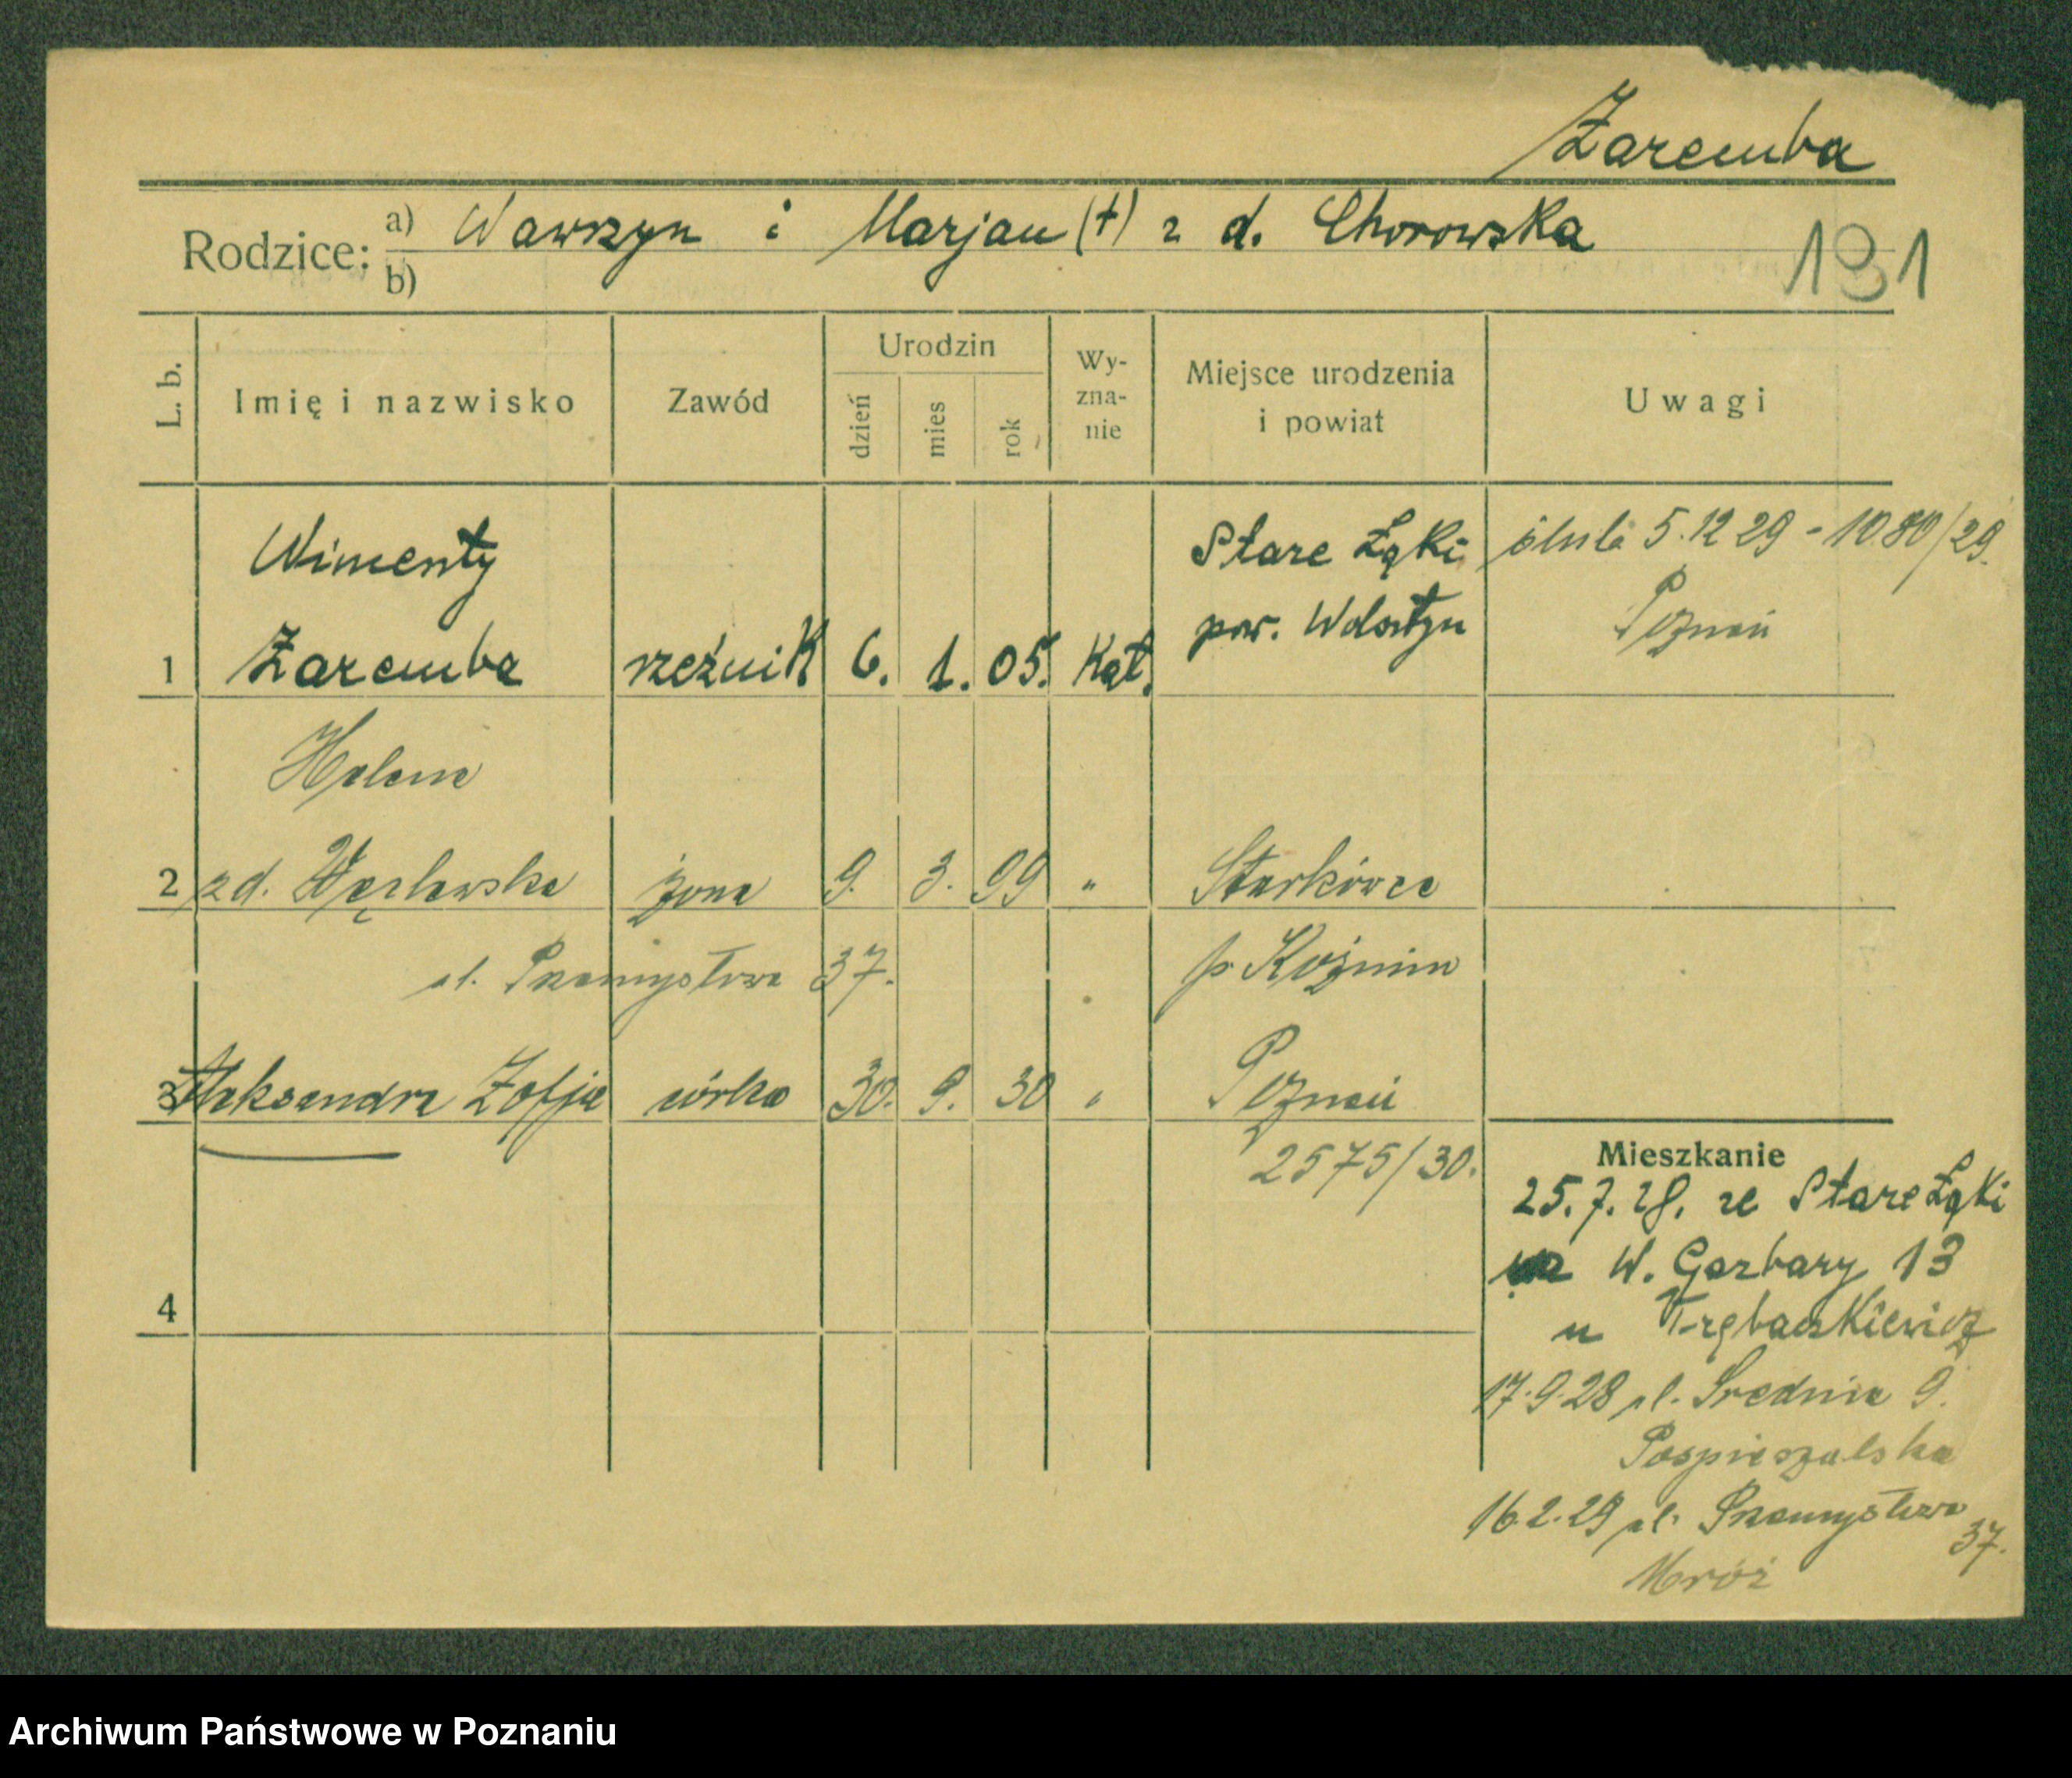 Zaremba
Rodzice: a) Wawrzyn i Marjan (†) z d. Chorowska
b)
191
L. b.
Imię i nazwisko
Zawód
Urodzin
dzień
mies
rok
Wy-
zna-
nie
Miejsce urodzenia
i powiat
Uwagi
Wincenty
Stare Łąki
ślub 5.12 29 - 1080/29.
pow. Wolsztyn
Poznań
1 Zaremba rzeźnik 6. 1. 05. Kat.
Helena
2 z d. Węclewska żona 9. 3. 99 " Starkówca
ul. Przemysłowa 37.
p. Koźmin
3 Aleksandra Zofja córka 30. 9. 30 " Poznań
2575/30.
Mieszkanie
25.7.28. ze Stare Łąki
na W. Garbary 13
u Trębaczkiewicz
4
17.9.28 ul. Średnia 9.
Pospieszalska
16.2.29 ul. Przemysłowa
37.
Mróz
Archiwum Państwowe w Poznaniu